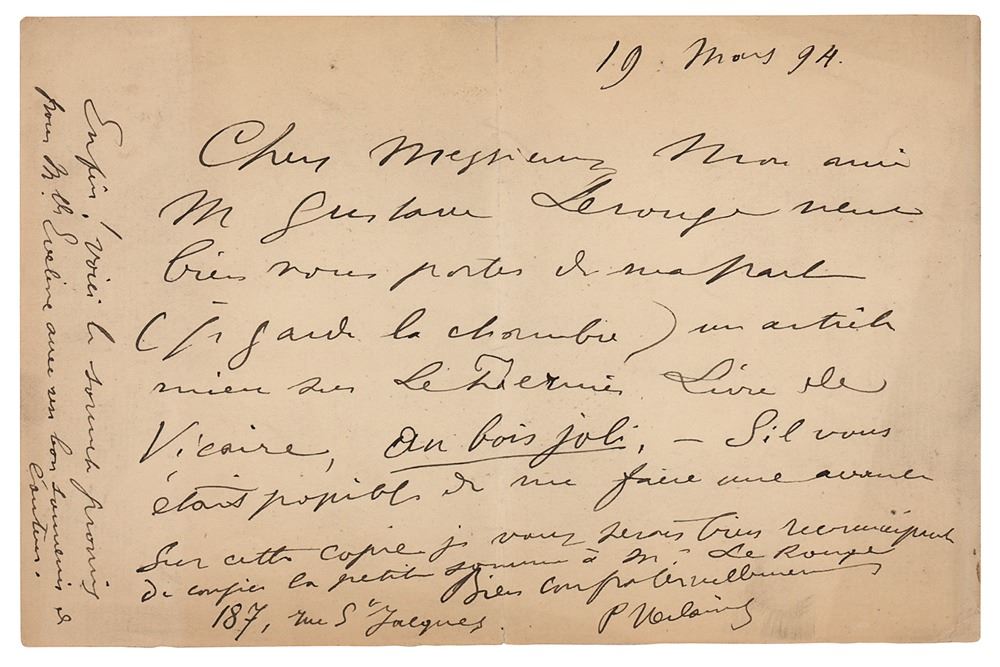 19 Mars 94.
Chers Messieurs Mon ami
M Gustave Lerouge veut
bien vous porter de ma part
(je garde la chambre) un article
mien sur le dernier Livre de
Vicaire, au bois joli, — S'il vous
était possible de me faire une avance
sur cette copie je vous serais bien reconnaissant
de confier la petite somme à M. Le Rouge
Bien confraternellement
P Verlaine
187, rue St Jacques.
Enfin! voici le sonnet promis
pour M. Eveline avec un bon souvenir de